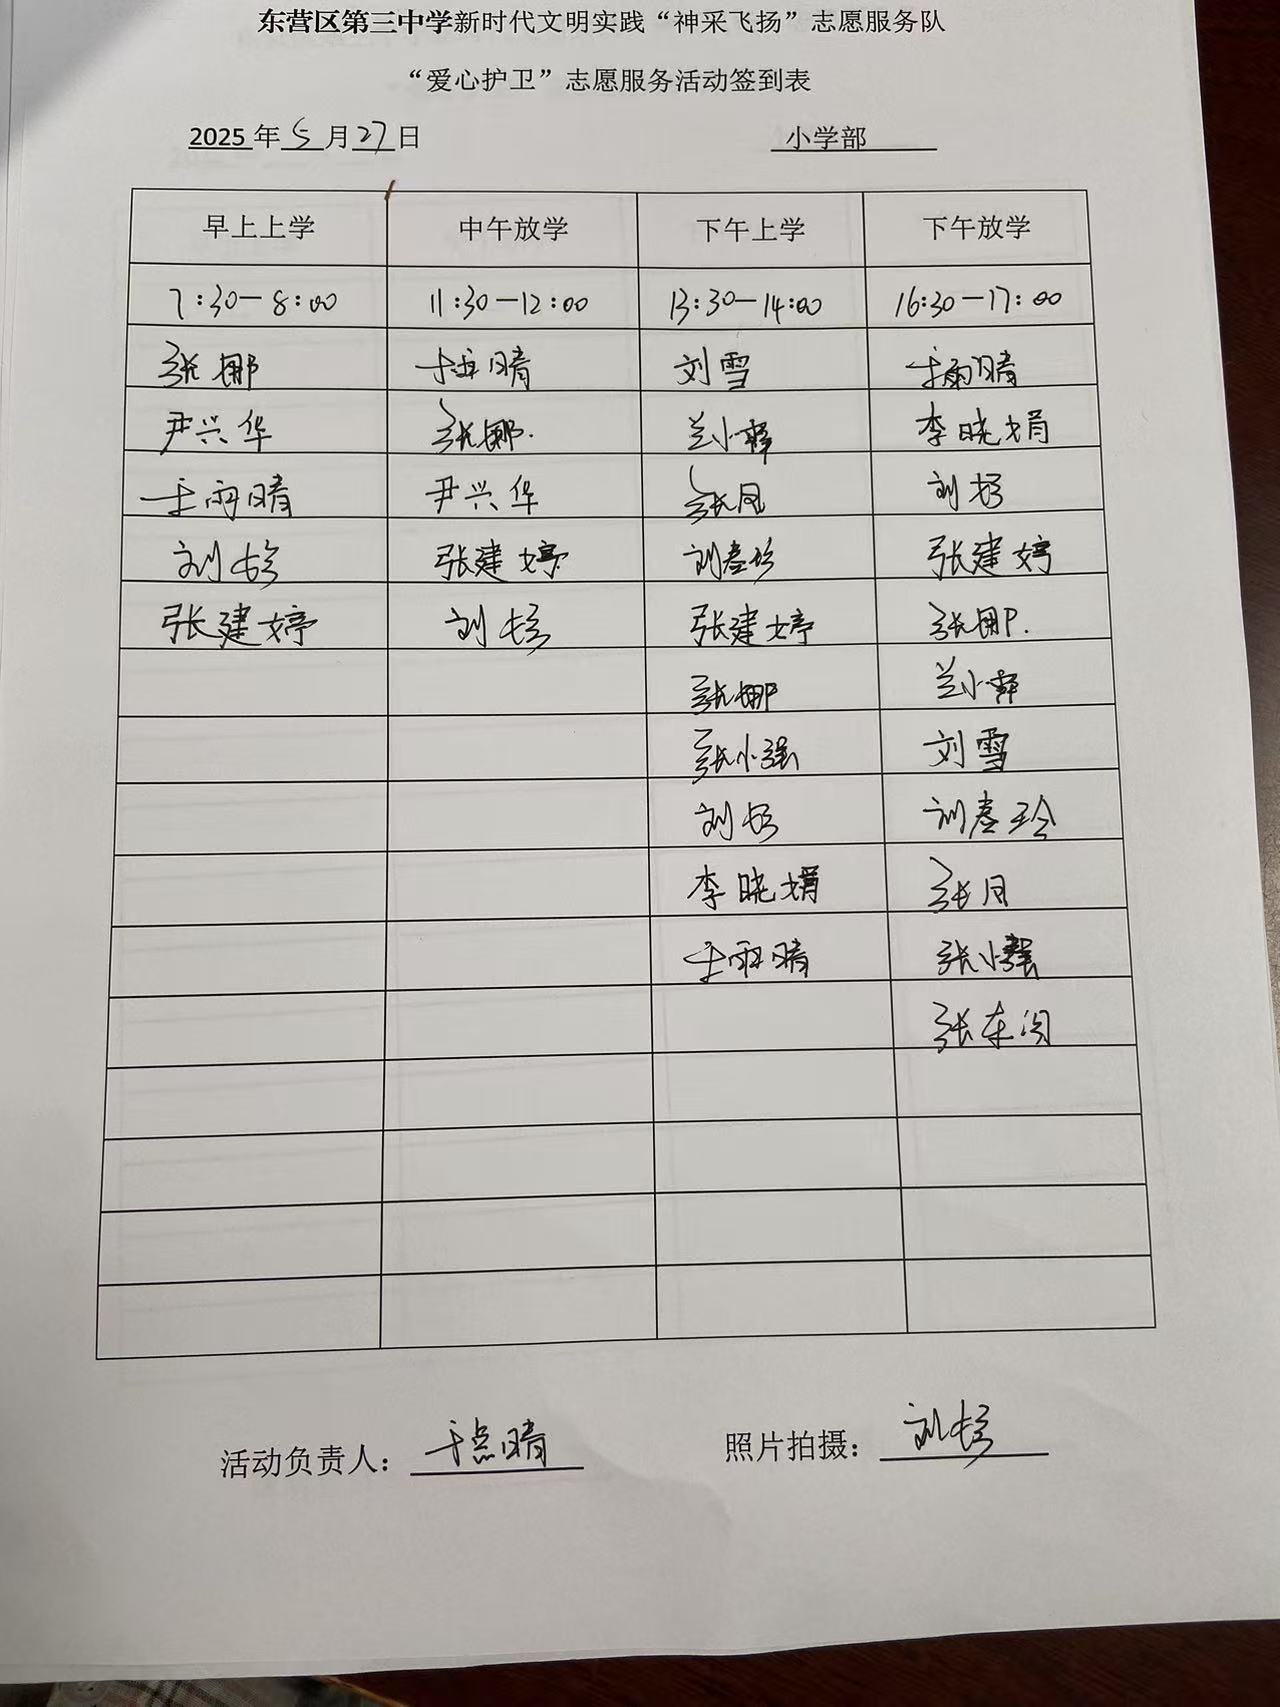 东营区第三中学新时代文明实践“神采飞扬”志愿服务队
“爱心护卫”志愿服务活动签到表
2025 年 5 月 27 日 小学部
早上上学 中午放学 下午上学 下午放学
7:30-8:00 11:30-12:00 13:30-14:00 16:30-17:00
张娜 于雨晴 刘雪 于雨晴
尹兴华 张娜. 兰小 李晓娟
于雨晴 尹兴华 张月 刘杉
刘杉 张建婷 刘春玲 张建婷
张建婷 刘杉 张建婷 张娜.
张娜 兰小
张小强 刘雪
刘杉 刘春玲
李晓娟 张月
于雨晴 张小强
张东
活动负责人: 于雨晴 照片拍摄: 刘杉